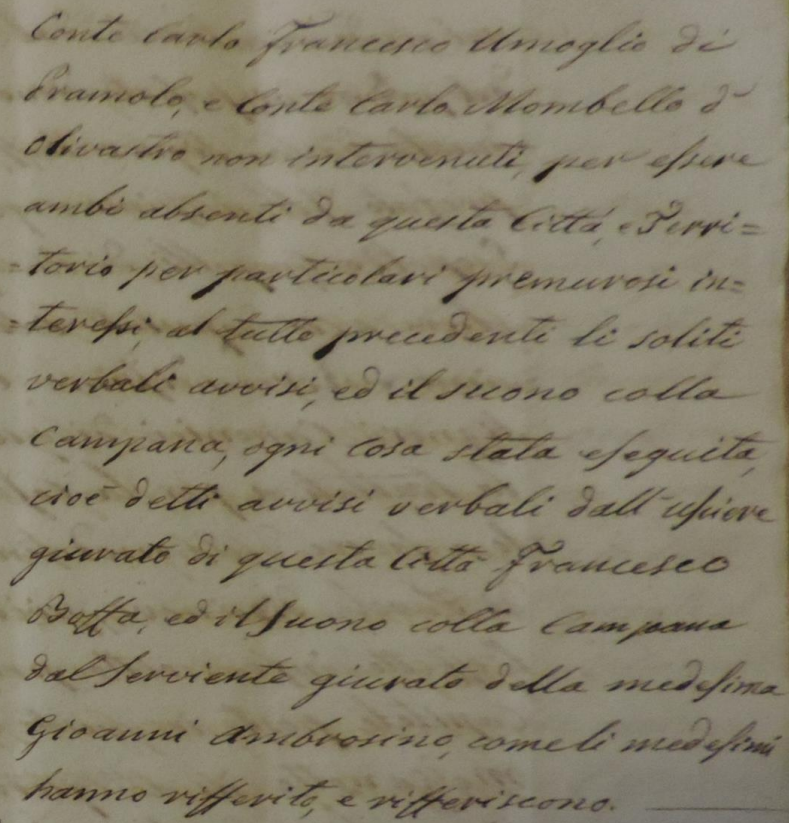 Conte Carlo Francesco Umoglio di
Pramolo, e Conte Carlo Mombello d'
Olivastro non intervenuti, per essere
ambi absenti da questa Città, e Terri=
=torio per particolari premurosi in=
=teressi, al tutto precedenti li soliti
verbali avvisi, ed il suono colla
Campana, ogni cosa stata eseguita,
cioè detti avvisi verbali dall'usciere
giurato di questa Città Francesco
Boffa, ed il suono colla Campana
dal Serviente giurato della medesima
Gioanni Ambrosino, come li medesimi
hanno rifferito, e rifferiscono.